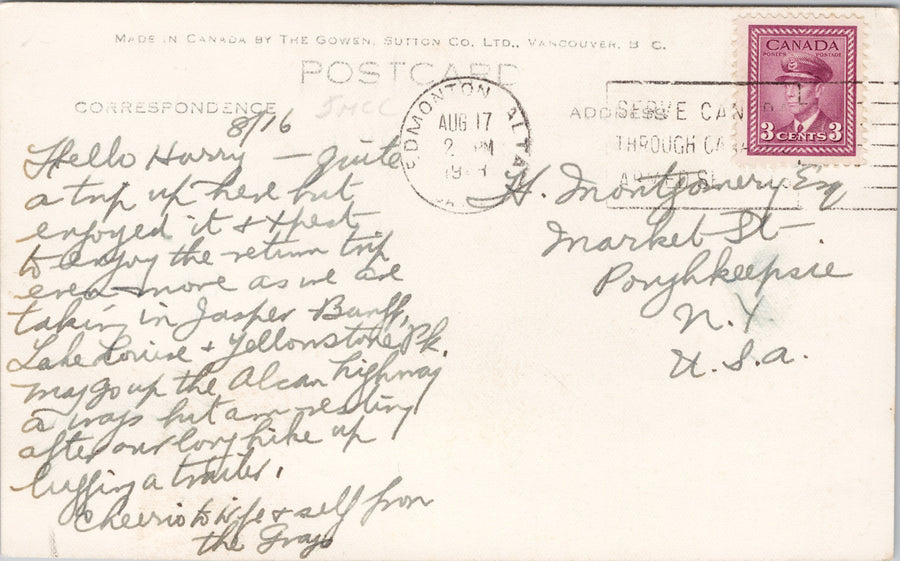 MADE IN CANADA BY THE GOWEN, SUTTON CO. LTD., VANCOUVER, B C.
POSTCARD
CORRESPONDENCE
ADDRESS
JMCC
8/16
Hello Harry — quite
a trip up here but
enjoyed it + expect
to enjoy the return trip
even more as we are
taking in Jasper Banff,
Lake Louise + Yellowstone Pk.
may go up the Alcan highway
a ways but am resting
after our long hike up
lugging a trailer.
Cheerio to wife + self from
the Grays
EDMONTON ALTA
AUG 17
PM
SERVE CANADA
THROUGH
CANADA
POSTES POSTAGE
3 CENTS 3
H. Montgomery Esq
Market St
Poryhkeepsie
N.Y.
U.S.A.